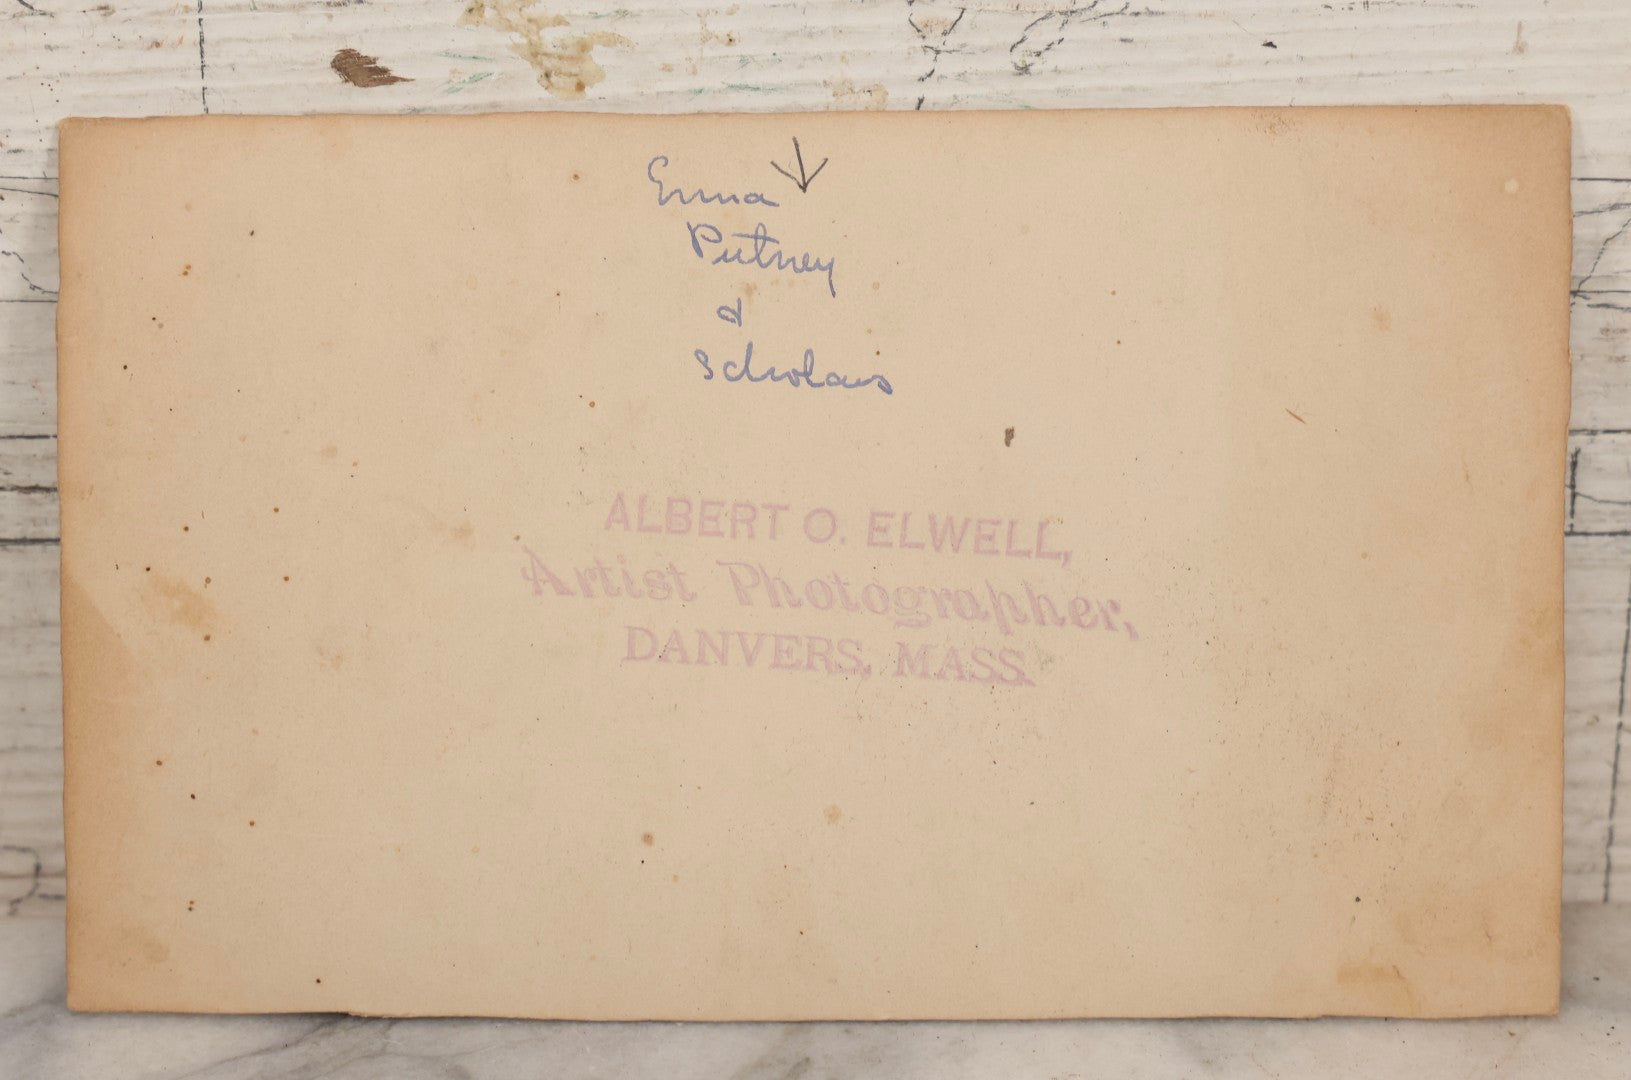 Emma
Putney
&
Scholars
ALBERT O. ELWELL,
Artist Photographer,
DANVERS, MASS.